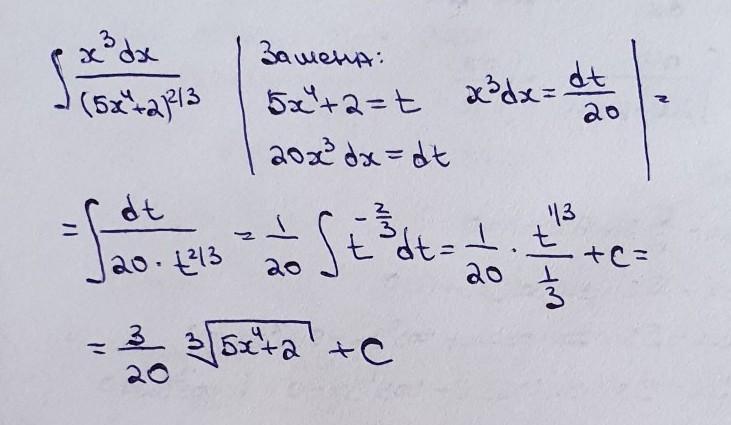 ∫ x³dx / (5x⁴+2)^2/3 | Замена: 5x⁴+2=t 20x³dx=dt x³dx= dt/20 | =
=∫ dt / 20·t^2/3 = 1/20 ∫ t^-2/3 dt = 1/20 · t^1/3 / 1/3 +C=
= 3/20 ∛(5x⁴+2) +C